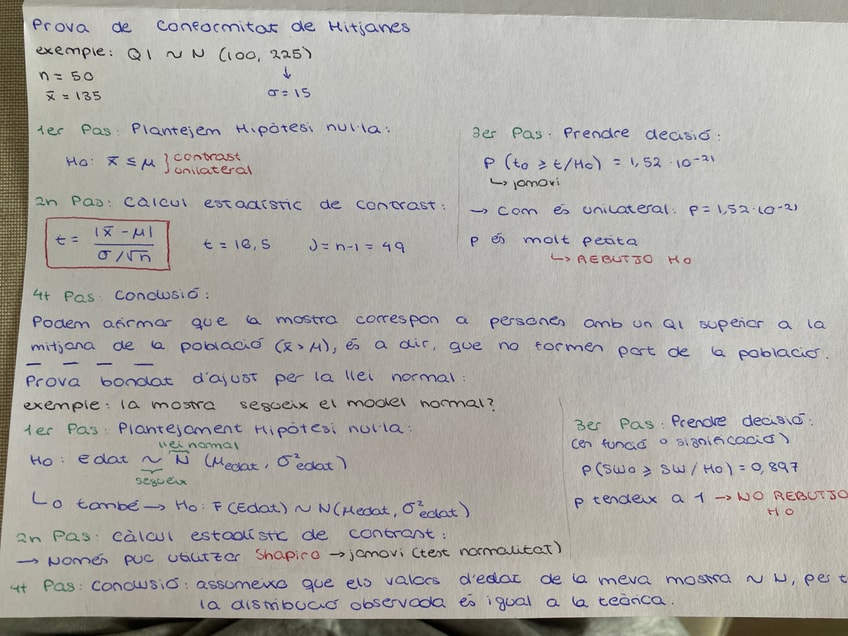 Prova de Conformitat de Mitjanes
exemple: QI ~ N (100, 225)
n = 50 ↓
x̄ = 135 σ = 15
1er Pas: Plantejem Hipòtesi nul·la:
H0: x̄ ≤ μ } contrast
unilateral
2n Pas: Càlcul estadístic de contrast:
t = |x̄ - μ| / σ/√n t = 16,5 ν = n-1 = 49
3er Pas: Prendre decisió:
P (t0 ≥ t/H0) = 1,52 · 10⁻²¹
↳ jamovi
→ Com és unilateral: p = 1,52 · 10⁻²¹
p és molt petita
↳ REBUTJO H0
4t Pas: Conclusió:
Podem afirmar que la mostra correspon a persones amb un QI superior a la
mitjana de la població (x̄ > μ), és a dir, que no formen part de la població.
Prova bondat d'ajust per la llei normal:
exemple: la mostra segueix el model normal?
1er Pas: Plantejament Hipòtesi nul·la:
llei normal
H0: edat ~ N (μedat, σ²edat)
segueix
↳ o també → H0: F(Edat) ~ N(μedat, σ²edat)
2n Pas: càlcul estadístic de contrast:
→ Només puc utilitzar Shapiro → jamovi (test normalitat)
3er Pas: Prendre decisió:
(en funció o significació)
P(SW0 ≥ SW/H0) = 0,897
p tendeix a 1 → NO REBUTJO
H0
4t Pas: Conclusió: assumeixo que els valors d'edat de la meva mostra ~ N, per t
la distribució observada és igual a la teòrica.